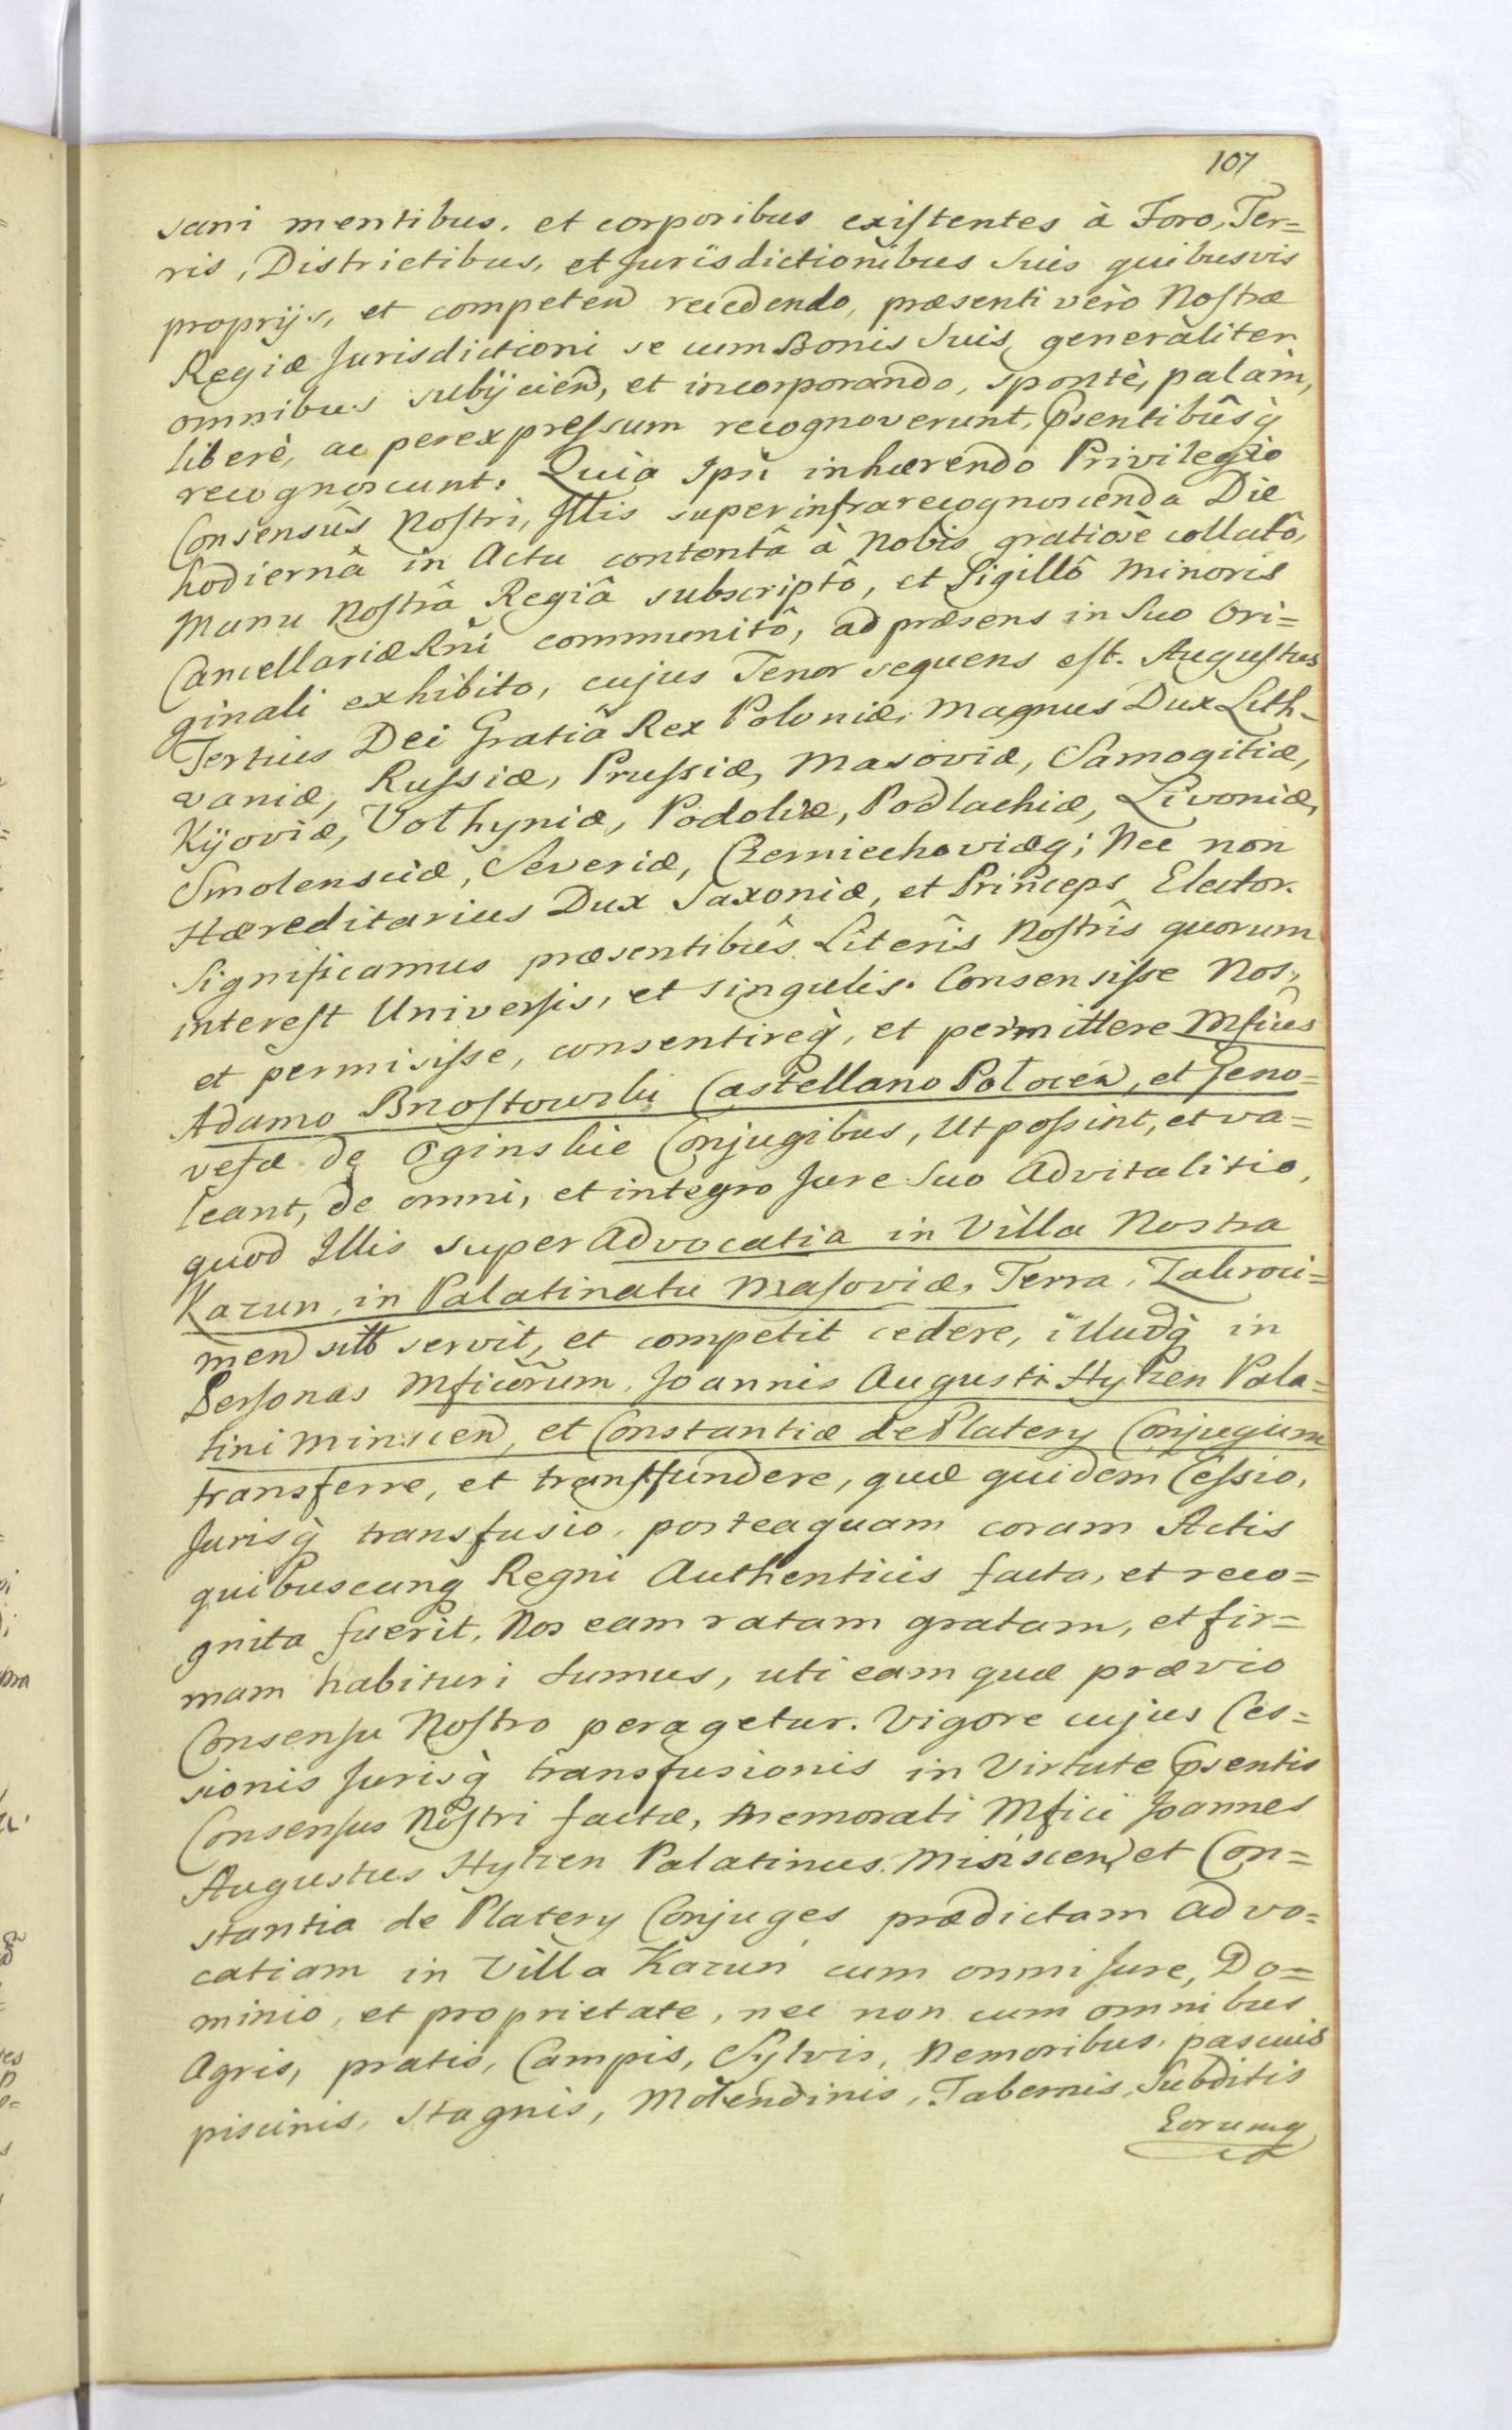 107
sani mentibus, et corporibus existentes à Foro, Ter=
ris, Districtibus, et Jurisdictionibus Suis quibusvis
proprijs, et competen recedendo, præsenti verò Nostræ
Regiæ Jurisdictioni se cum Bonis Suis generaliter
omnibus subijcien, et incorporando, sponte, palàm,
liberè, ac per expressum recognoverunt, psentibûsq̀
recognoscunt. Quia Ipsi inhærendo Privilegio
Consensûs Nostri, Illis super infrarecognoscenda Die
hodiernâ in Actu contentâ à Nobis gratiosè collatô,
Manu Nostrâ Regiâ subscriptô, et Sigillô Minoris
Cancellariæ Rni communitô, ad præsens in Suo Ori=
ginali exhibito, cujus Tenor sequens est. Augustus
Tertius Dei Gratiâ Rex Poloniæ, Magnus Dux Lith-
vaniæ, Russiæ, Prussiæ, Masoviæ, Samogitiæ,
Kijoviæ, Volhyniæ, Podoliæ, Podlachiæ, Livoniæ,
Smolensciæ, Severiæ, Czerniechoviæq; Nec non
Hæreditarius Dux Saxoniæ, et Princeps Elector.
Significamus præsentibûs Literîs Nostrîs quorum
interest Universis, et singulis. Consensisse Nos,
et permisisse, consentireq̀, et permittere Mficis
Adamo Brzostowski Castellano Polocen, et Geno=
vefæ de Oginskie Conjugibus, Ut possint, et va=
leant, de omni, et integro Jure Suo Advitalitio,
quod Illis super Advocatia in Villa Nostra
Kazun, in Palatinatu Masoviæ, Terra, Zakroci=
men sitt servit, et competit cedere, illudq̀ in
Personas Mficorum Joannis Augusti Hylzen Pala=
tini Minscen, et Constantiæ de Platery Conjugum
transferre, et transfundere, quæ quidem Cessio,
Jurisq̀ transfusio, posteaquam coram Actis
quibuscunq Regni Authenticis facta, et reco=
gnita fuerit, Nos eam ratam gratam, et fir=
mam habituri Sumus, uti eam quæ prævio
Consensu Nostro peragetur. Vigore cujus Ces=
sionis Jurisq̀ transfusionis in Virtute psentis
Consensus Nostri factæ, memorati Mfici Joannes
Augustus Hylzen Palatinus Minscen, et Con=
stantia de Platery Conjuges prædictam Advo=
catiam in Villa Kazun cum omni Jure, Do=
minio, et proprietate, nec non cum omnibus
Agris, pratis, Campis, Sylvis, Nemoribus, pascuis
piscinis, Stagnis, Molendinis, Tabernis, Subditis
Eorumq